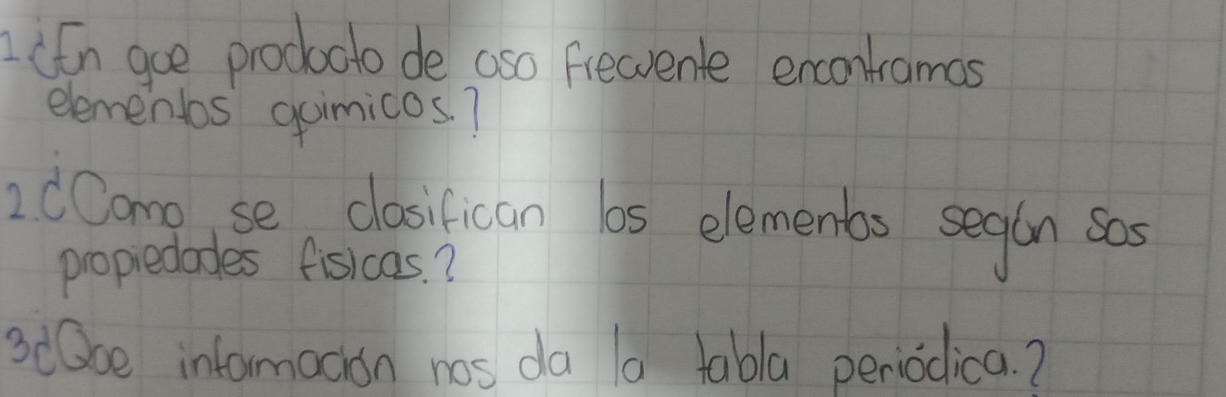 1 ¿En que producto de uso frecuente encontramos
elementos quimicos.?
2. ¿Como se clasifican los elementos según sus
propiedades fisicas.?
3 ¿Que información nos da la tabla periódica.?